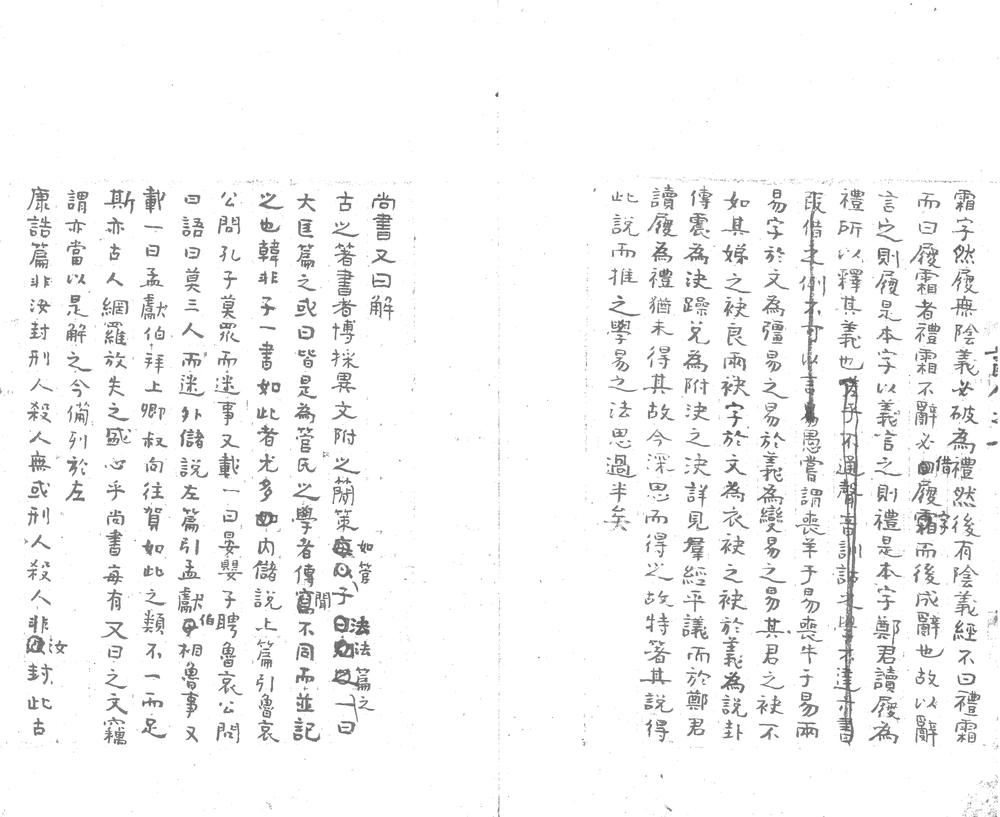 霜字然履無陰義必破為禮然後有陰義經不曰禮霜
而曰履霜者禮霜不辭必借履字而後成辭也故以辭
言之則履是本字以義言之則禮是本字鄭君讀履為
禮所以釋其義也
假借之例不可以言易愚嘗謂喪羊于易喪牛于易兩
易字於文為疆易之易於義為變易之易其君之袂不
如其娣之袂良兩袂字於文為衣袂之袂於義為說卦
傳震為決躁兌為附決之決詳見羣經平議而於鄭君
讀履為禮猶未得其故今深思而得之故特箸其說得
此說而推之學易之法思過半矣
尚書又曰解
古之著書者博採異文附之簡策如管子法法篇之一曰
大匡篇之或曰皆是為管氏之學者傳聞不同而並記
之也韓非子一書如此者尤多內儲說上篇引魯哀
公問孔子莫眾而迷事又載一曰晏嬰子聘魯哀公問
曰語曰莫三人而迷外儲說左篇引孟獻伯相魯事又
載一曰孟獻伯拜上卿叔向往賀如此之類不一而足
斯亦古人網羅放失之盛心乎尚書每有又曰之文竊
謂亦當以是解之今備列於左
康誥篇非汝封刑人殺人無或刑人殺人非汝封此古